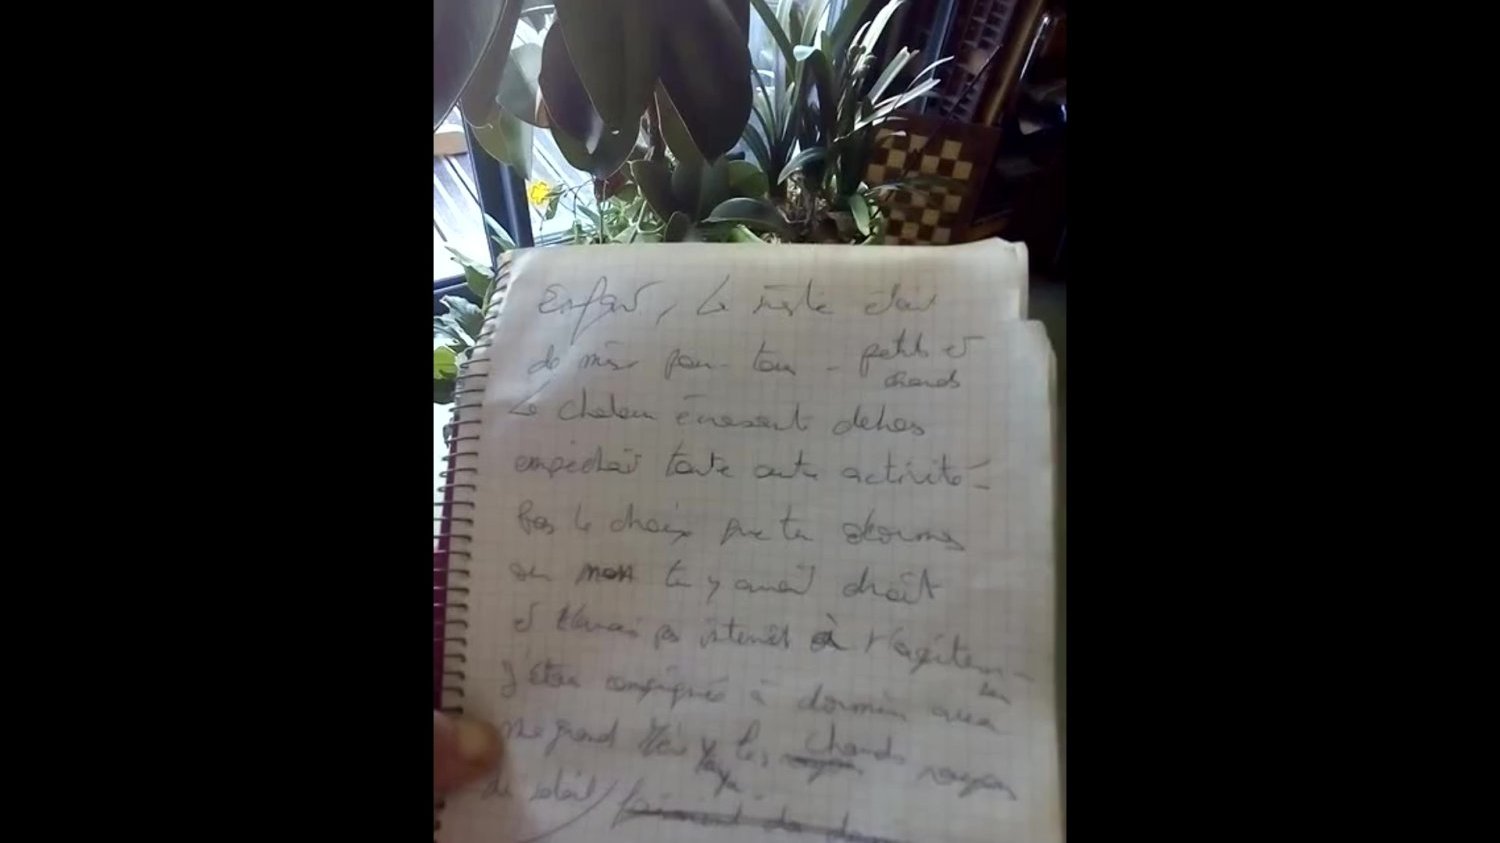 Enfant, la sieste était
de mise pour tous - petits et
grands
La chaleur écrasante dehors
empêchait toute autre activité -
Pas le choix que tu dormes
ou non tu y avait droit
et n'avais pas intérêt à t'agiter
J'étais consignée à dormir avec
Ma grand Mère Yaya les chauds rayons
du soleil